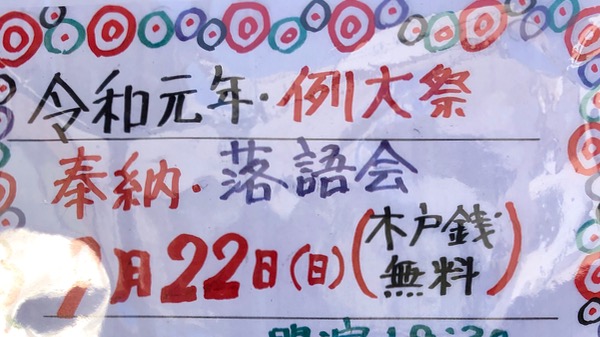 令和元年・例大祭
奉納・落語会
月22日(日)(木戸銭
無料)